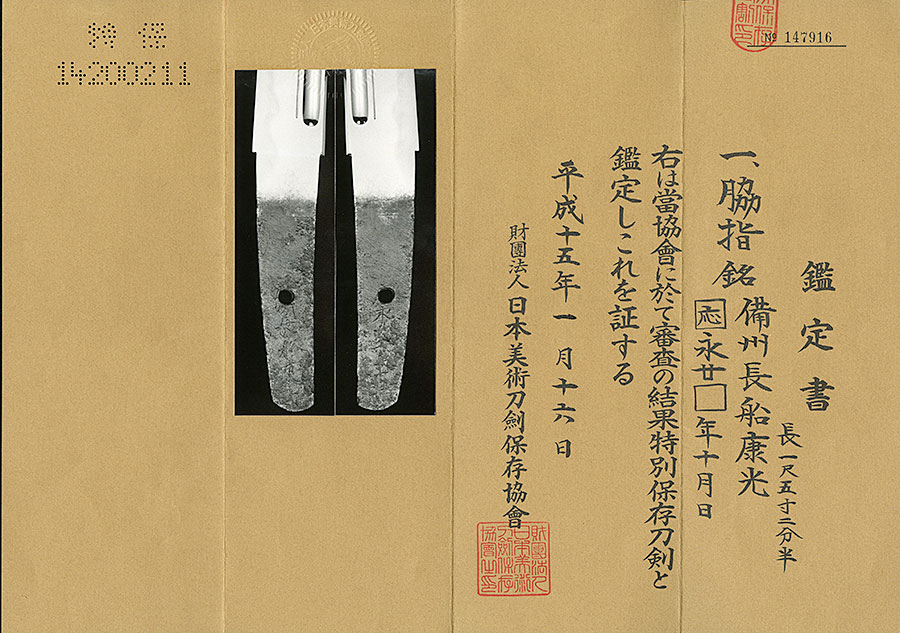 特 保
14200211
№ 147916
鑑定書
長一尺五寸二分半
一、脇指 銘 備州長船康光
応永廿□年十月日
右は當協會に於て審査の結果特別保存刀剣と
鑑定しこれを証する
平成十五年一月十六日
財團法人 日本美術刀劍保存協會
財團法人
日本美術
刀劍保存
協會之印